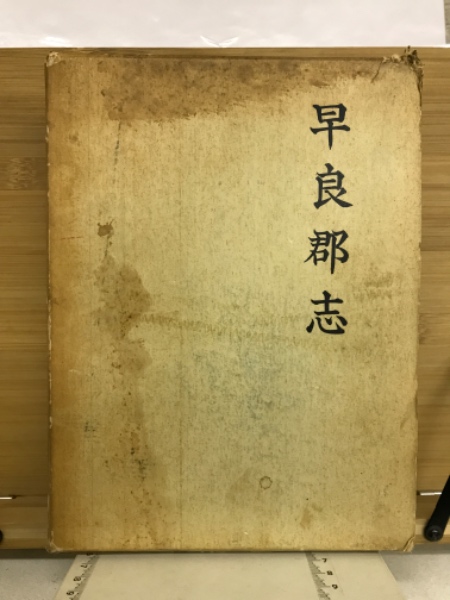 早良郡志